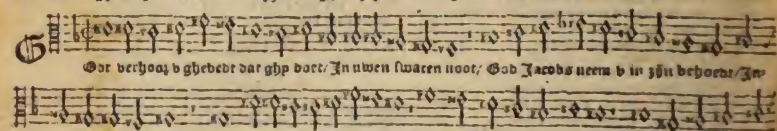 GOdt verhooz v ghebedt dat ghy doet/ In uwen swaren noot/ God Jacobs neem v in zijn behoedt/ In